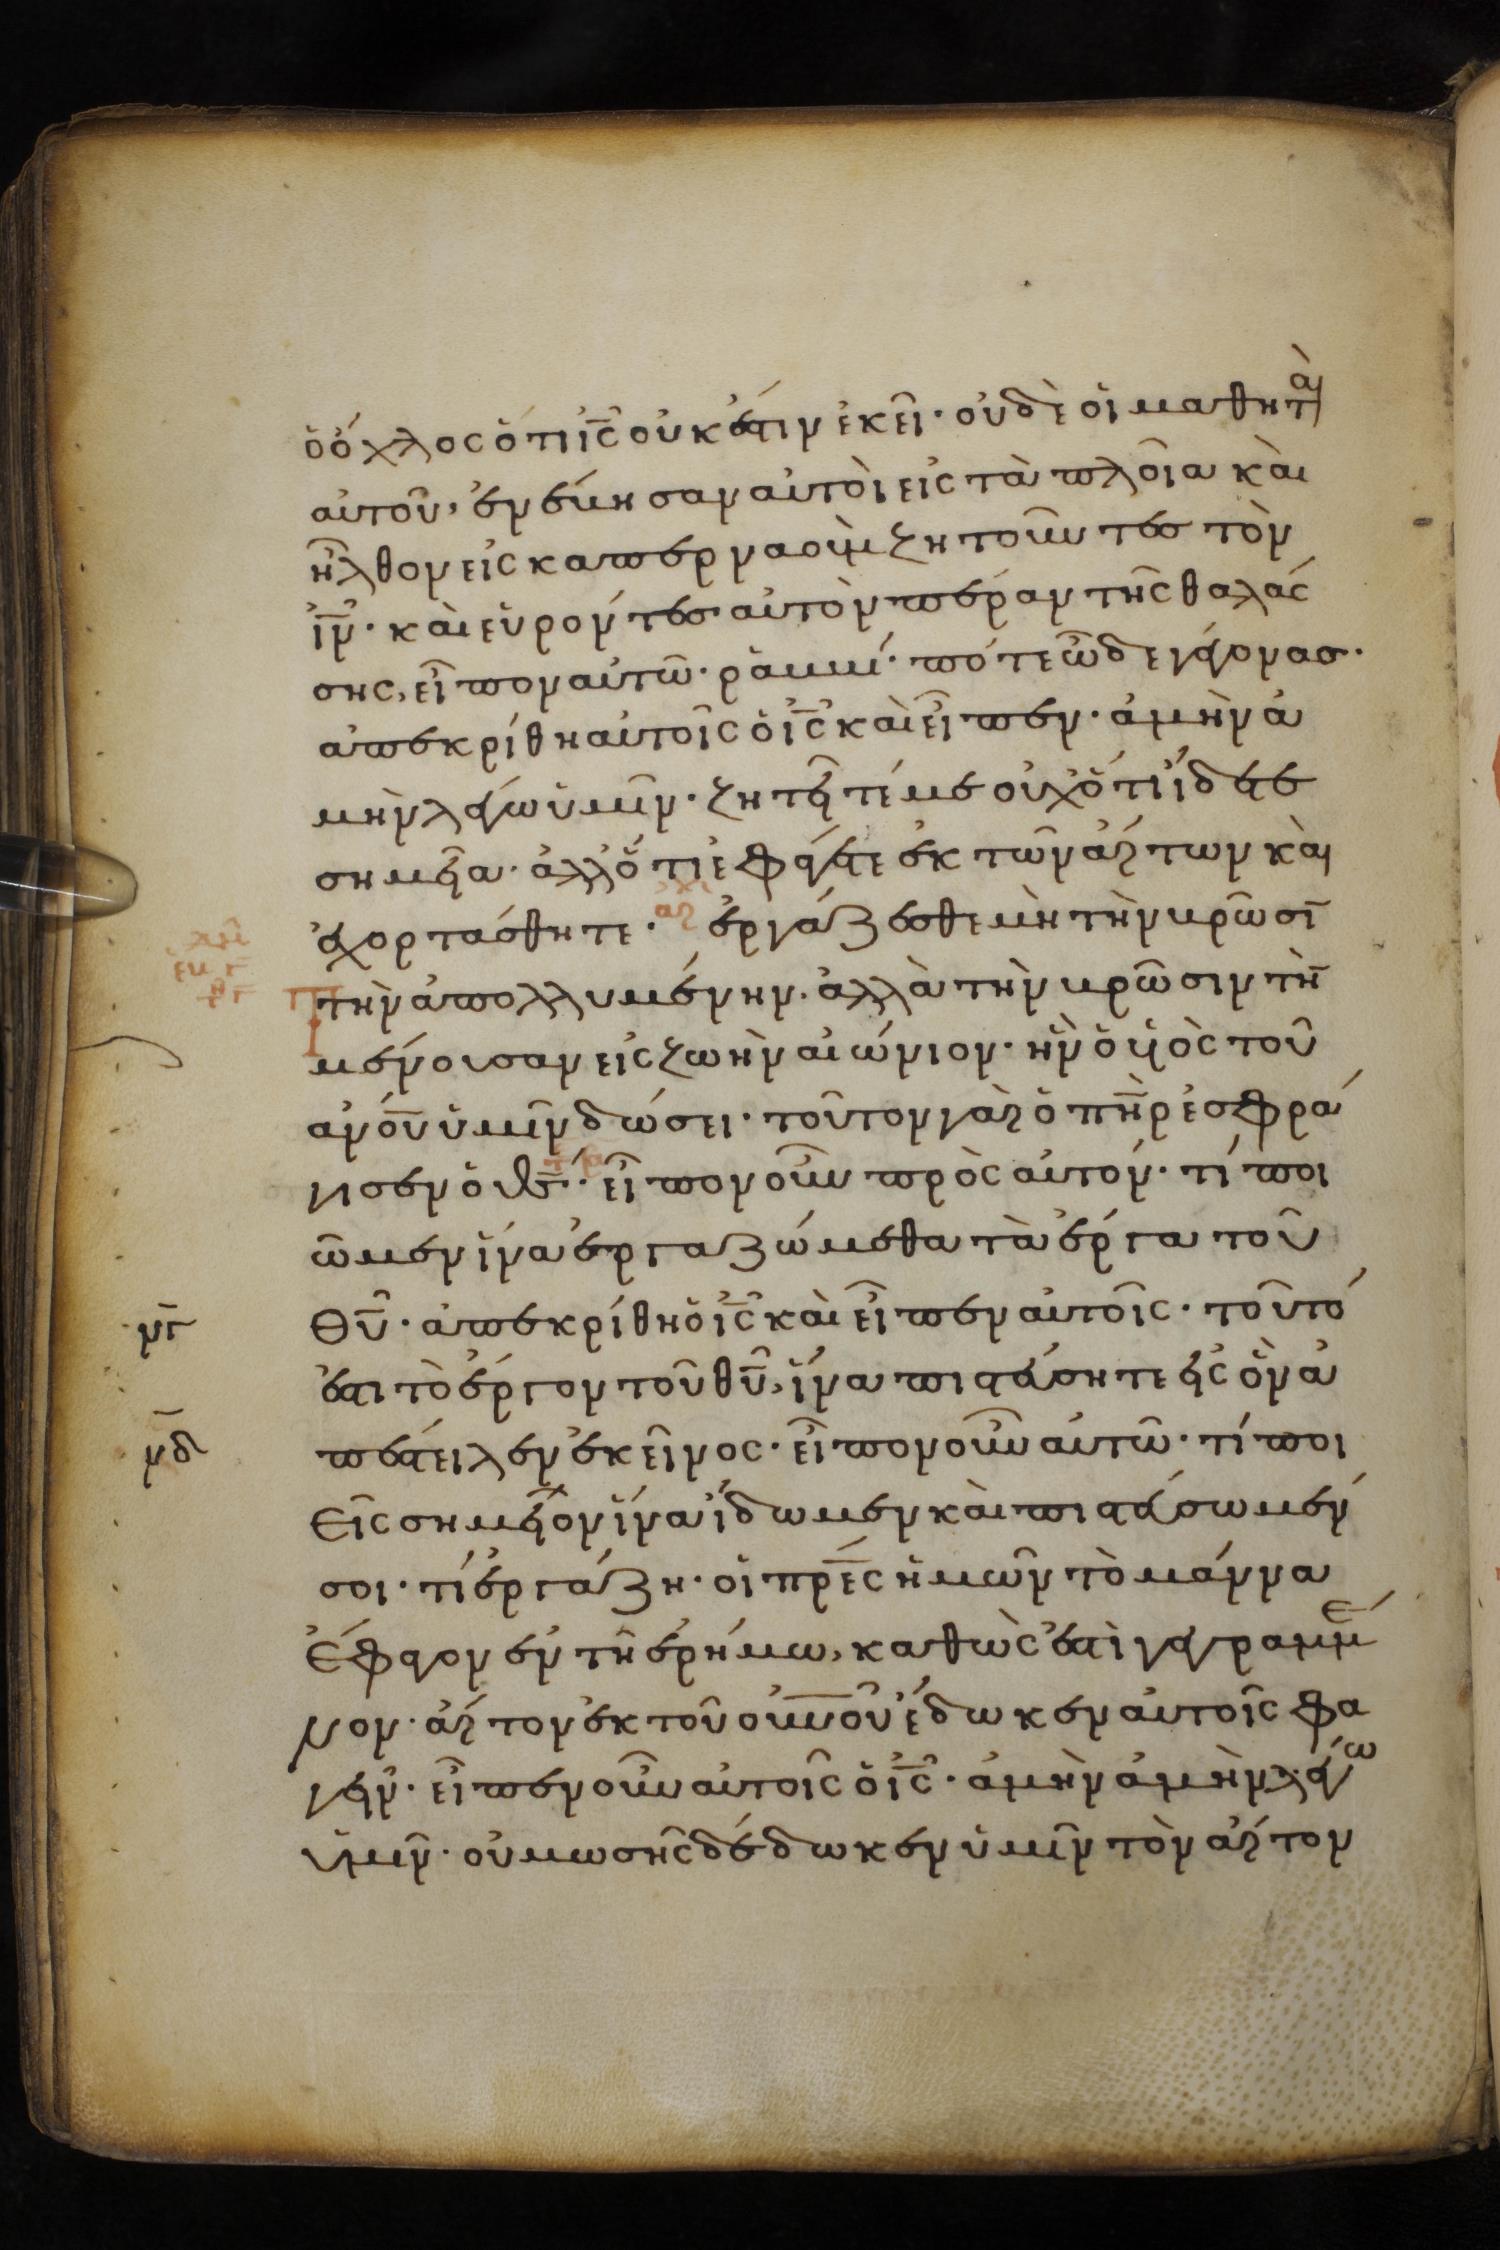 ὁ ὄχλος ὅτι ἰ̅ς̅ οὐκ ἔστιν ἐκεῖ· οὐδὲ οἱ μαθηταὶ
αὐτοῦ, ἐνέβησαν αὐτοὶ εἰς τὰ πλοῖα καὶ
ἦλθον εἰς καπερναοὺμ ζητοῦντες τὸν
ἰ̅ν̅· καὶ εὑρόντες αὐτὸν πέραν τῆς θαλάσ
σης, εἶπον αὐτῶ· ῥαββί· πότε ὧδε γέγονας·
ἀπεκρίθη αὐτοῖς ὁ ἰ̅ς̅ καὶ εἶπεν· ἀμὴν ἀ
μὴν λέγω ὑμῖν· ζητεῖτέ με οὐχ ὅτι ἴδετε
σημεῖα· ἀλλ' ὅτι ἐφάγετε ἐκ τῶν ἄρτων καὶ
ἐχορτάσθητε· ἐργάζεσθε μὴ τὴν βρῶσι̅
τὴν ἀπολλυμένην· ἀλλὰ τὴν βρῶσιν τὴ̅
μένουσαν εἰς ζωὴν αἰώνιον· ἣν ὁ υἱὸς τοῦ
ἀν̅ο̅υ̅ ὑμῖν δώσει· τοῦτον γὰρ ὁ π̅η̅ρ̅ ἐσφρά
γισεν ὁ θ̅ς̅· εἶπον οὖν πρὸς αὐτόν· τί ποι
ῶμεν ἵνα ἐργαζώμεθα τὰ ἔργα τοῦ
θ̅υ̅· ἀπεκρίθη ὁ ἰ̅ς̅ καὶ εἶπεν αὐτοῖς· τοῦτό
ἐστι τὸ ἔργον τοῦ θ̅υ̅, ἵνα πιστεύσητε εἰς ὃν ἀ
πέστειλεν ἐκεῖνος· εἶπον οὖν αὐτῶ· τί ποι
εῖς σημεῖον ἵνα ἴδωμεν καὶ πιστεύσωμέν
σοι· τί ἐργάζη· οἱ π̅ρ̅ε̅ς̅ ἡμῶν τὸ μάννα
ἔφαγον ἐν τῆ ἐρήμω, καθὼς ἐστὶ γεγραμμέ
νον· ἄρτον ἐκ τοῦ ο̅υ̅ν̅ο̅υ̅ ἔδωκεν αὐτοῖς φα
γεῖν· εἶπεν οὖν αὐτοῖς ὁ ἰ̅ς̅· ἀμὴν ἀμὴν λέγω
ὑμῖν· οὐ μωσῆς δέδωκεν ὑμῖν τὸν ἄρτον
ν̅γ̅
ν̅δ̅